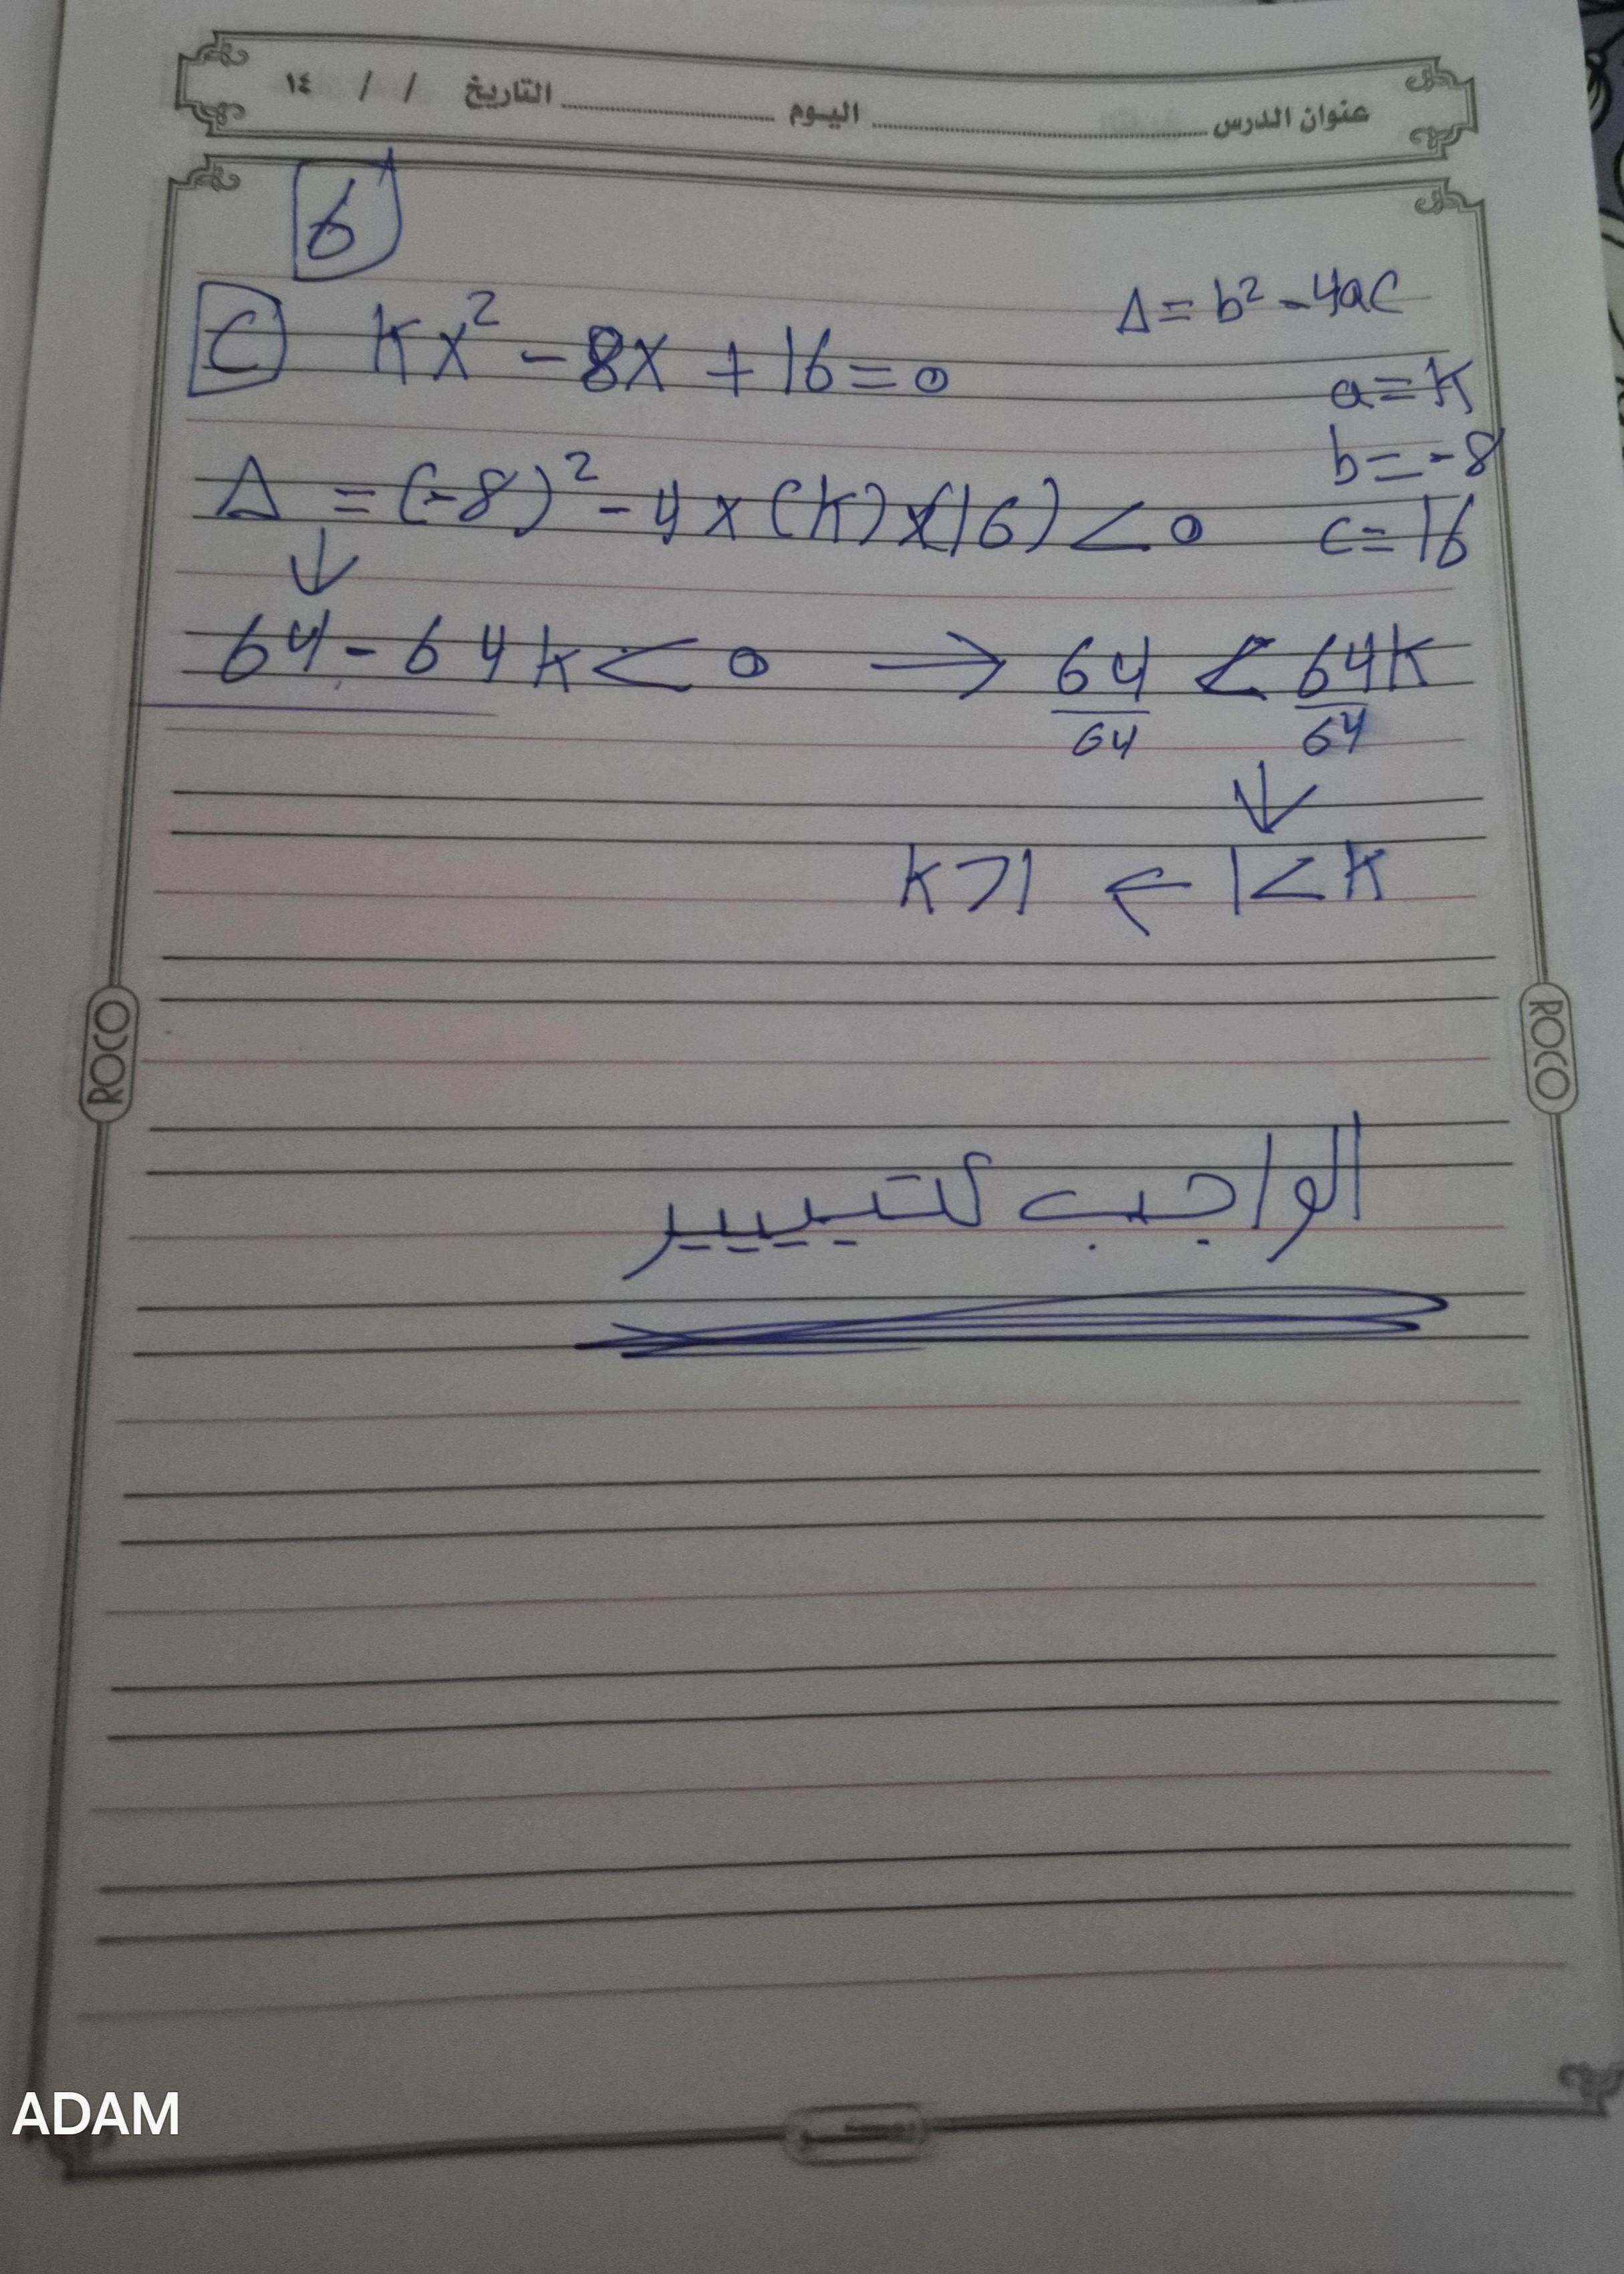 عنوان الدرس ............ اليوم ............ التاريخ / / ١٤
6
C Kx² - 8x + 16 = 0
Δ = b² - 4ac
a = K
b = -8
c = 16
Δ = (-8)² - 4 x (K) x (16) < 0
↓
64 - 64k < 0 → 64/64 < 64k/64
↓
k > 1 ← 1 < k
ROCO
ROCO
الواجب كتيييير
ADAM